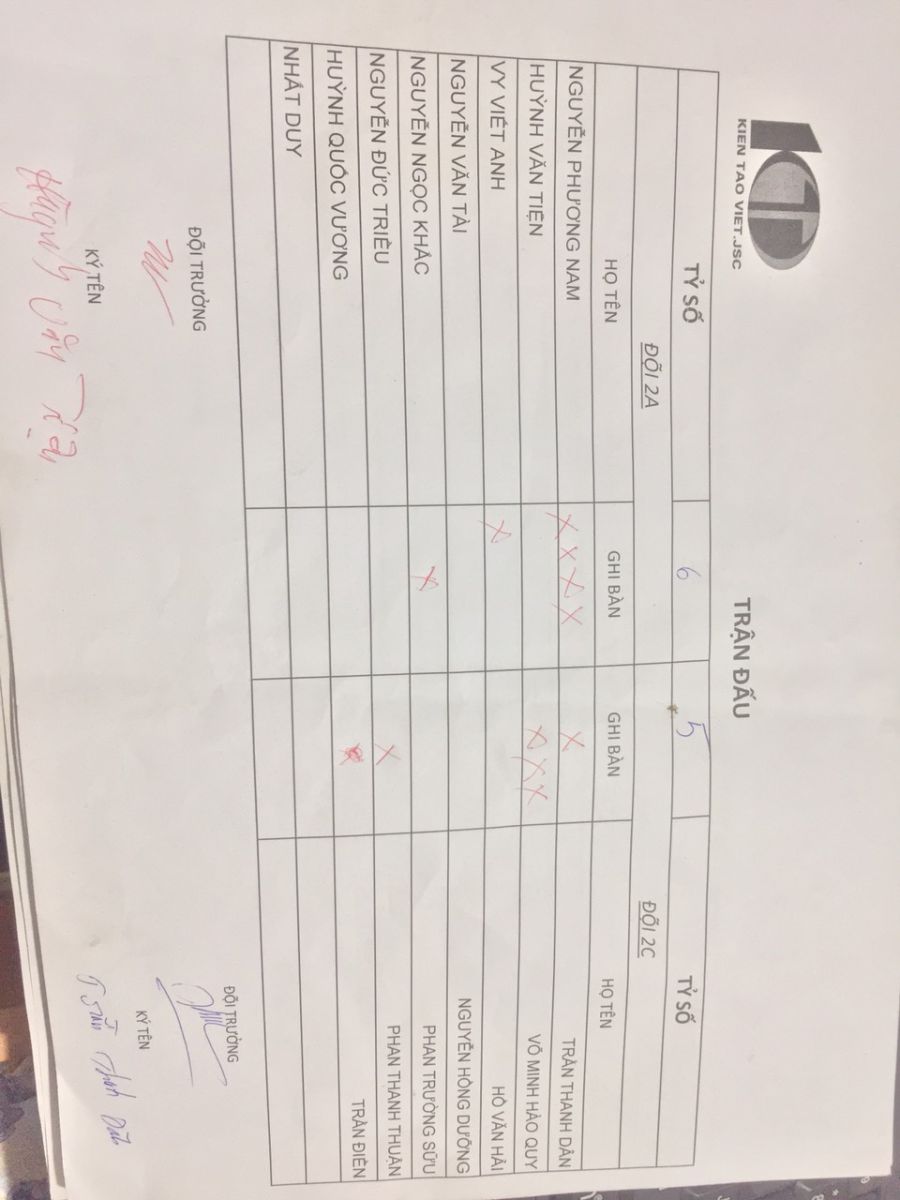 KIEN TAO VIET.JSC
TRẬN ĐẤU
TỶ SỐ 6 5 TỶ SỐ
ĐỘI 2A ĐỘI 2C
HỌ TÊN GHI BÀN GHI BÀN HỌ TÊN
NGUYỄN PHƯƠNG NAM X X X X X TRẦN THANH DÂN
HUỲNH VĂN TIỆN X X X VÕ MINH HÀO QUY
VY VIẾT ANH X HỒ VĂN HẢI
NGUYỄN VĂN TÀI NGUYỄN HỒNG DƯỠNG
NGUYỄN NGỌC KHẮC X PHAN TRƯỜNG SỬU
NGUYỄN ĐỨC TRIỀU X PHAN THANH THUẬN
HUỲNH QUỐC VƯƠNG TRẦN ĐIỀN
NHẤT DUY
ĐỘI TRƯỞNG ĐỘI TRƯỞNG
KÝ TÊN KÝ TÊN
Huỳnh Văn Tiện Trần Thanh Dân